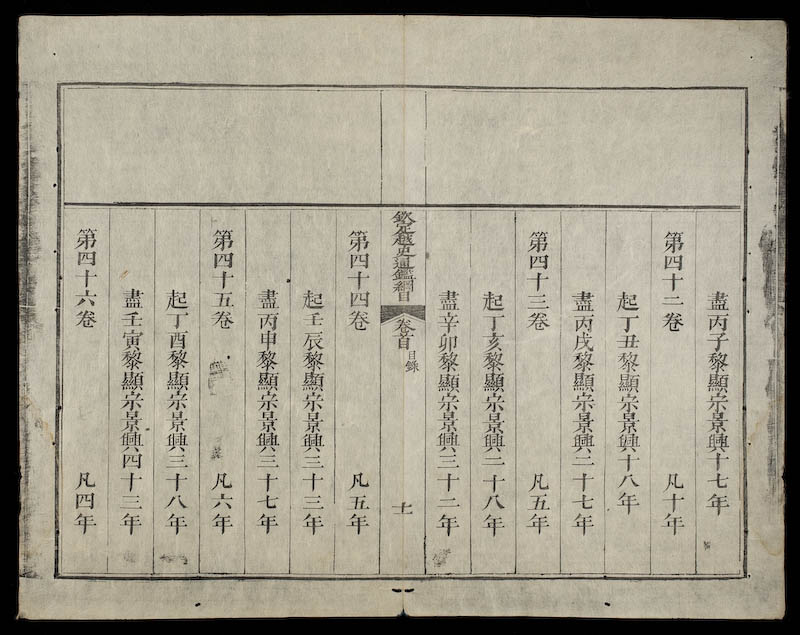 盡丙子黎顯宗景興十七年
第四十二卷 凡十年
起丁丑黎顯宗景興十八年
盡丙戌黎顯宗景興二十七年
第四十三卷 凡五年
起丁亥黎顯宗景興二十八年
盡辛卯黎顯宗景興三十二年
欽定越史通鑑綱目 卷首 目錄 十一
第四十四卷 凡五年
起壬辰黎顯宗景興三十三年
盡丙申黎顯宗景興三十七年
第四十五卷 凡六年
起丁酉黎顯宗景興三十八年
盡壬寅黎顯宗景興四十三年
第四十六卷 凡四年